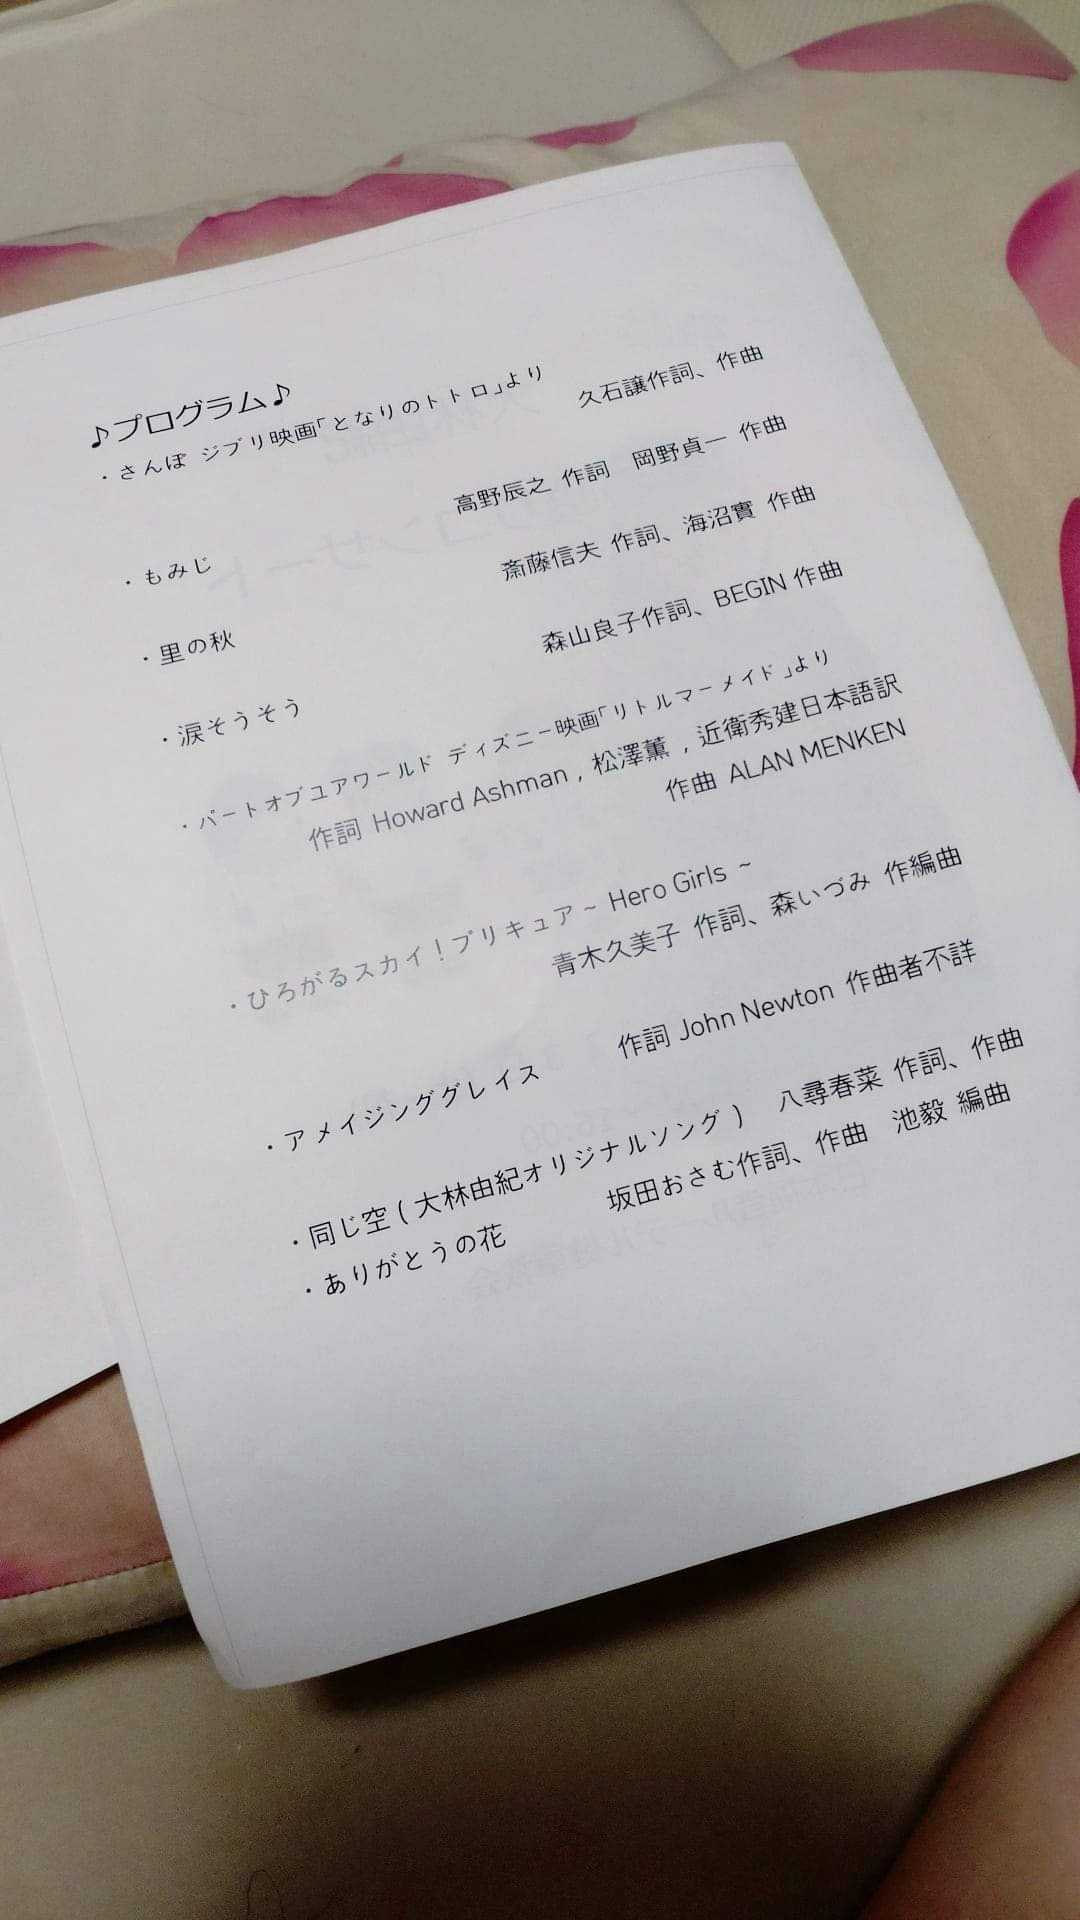 ♪プログラム♪
・さんぽ ジブリ映画「となりのトトロ」より
久石譲作詞、作曲
高野辰之 作詞 岡野貞一 作曲
・もみじ
斎藤信夫 作詞、海沼實 作曲
・里の秋
森山良子作詞、BEGIN 作曲
・涙そうそう
・パートオブユアワールド ディズニー映画「リトルマーメイド」より
作詞 Howard Ashman , 松澤薫 , 近衛秀建日本語訳
作曲 ALAN MENKEN
・ひろがるスカイ！プリキュア ~ Hero Girls ~
青木久美子 作詞、森いづみ 作編曲
・アメイジンググレイス 作詞 John Newton 作曲者不詳
・同じ空 ( 大林由紀オリジナルソング ) 八尋春菜 作詞、作曲
・ありがとうの花 坂田おさむ作詞、作曲 池毅 編曲